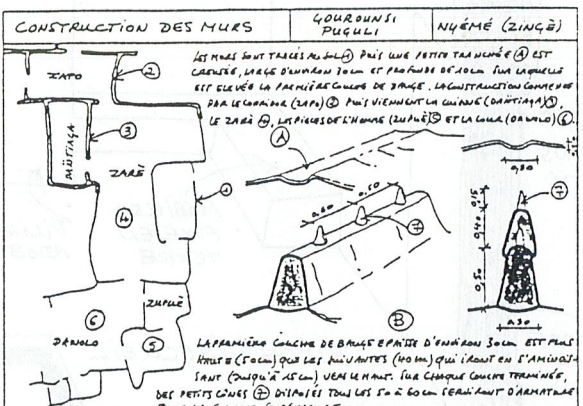 CONSTRUCTION DES MURS
GOUROUNSI
PUGULI
NYÉMÉ (ZINGÈ)
LES MURS SONT TRACÉS AU SOL ① PUIS UNE PETITE TRANCHÉE Ⓐ EST
CREUSÉE, LARGE D'ENVIRON 30CM ET PROFONDE DE 10CM SUR LAQUELLE
EST ELEVÉE LA PREMIÈRE COUCHE DE BAUGE. LA CONSTRUCTION COMMENCE
PAR LE CORRIDOR (ZAPO) ② PUIS VIENNENT LA CUISINE (DANTIAGA) ③,
LE ZARÈ ④, LES PIECES DE L'HOMME (ZUPUÈ) ⑤ ET LA COUR (DANOLO) ⑥.
ZAPO
②
③
DANTIAGA
ZARÈ
①
④
ZUPUÈ
⑥
DANOLO
⑤
Ⓐ
0.60
0.50
⑦
Ⓑ
0,30
⑦
0,15
0,40
0,50
0.30
LA PREMIÈRE COUCHE DE BAUGE EPAISSE D'ENVIRON 30CM EST PLUS
HAUTE (50CM) QUE LES SUIVANTES (40CM) QUI IRONT EN S'AMINCIS-
SANT (JUSQU'À 15CM) VERS LE HAUT. SUR CHAQUE COUCHE TERMINÉE,
DES PETITS CÔNES ⑦ DISPOSÉS TOUS LES 50 À 60CM SERVIRONT D'ARMATURE